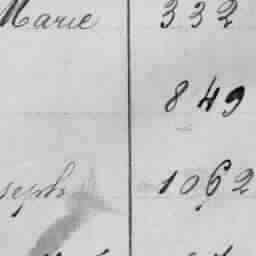 Marie 332
849
seph 1062